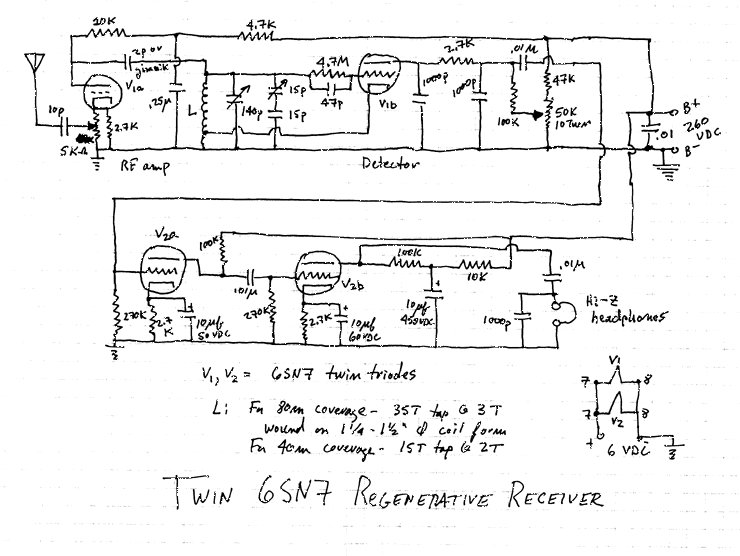 20K
4.7K
2p or
gimmik
4.7M
2.7K
.01M
V1a
V1b
47K
.25µ
L
140p
15p
15p
47p
1000p
1000p
100K
50K
10 Turn
B+
.01
260
VDC
B-
10p
2.7K
5K
RF amp
Detector
V2a
100K
V2b
100K
10K
.01µ
.01µ
270K
2.7
K
10µf
50VDC
270K
2.7K
10µf
60VDC
10µf
450VDC
1000p
Hi-Z
headphones
V1, V2 = 6SN7 twin triodes
L: For 80m coverage - 35T tap @ 3T
wound on 1 1/4 - 1 1/2" φ coil form
For 40m coverage - 15T tap @ 2T
V1
7
8
7
V2
8
+
6 VDC
-
TWIN 6SN7 REGENERATIVE RECEIVER